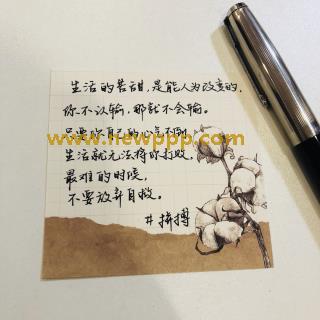 生活的苦甜,是能人为改变的,
你不认输,那就不会输。
只要你自己的心气不倒,
www.hewppp.com
生活就无法将你打败,
最难的时候,
不要放弃自救。
#拼搏